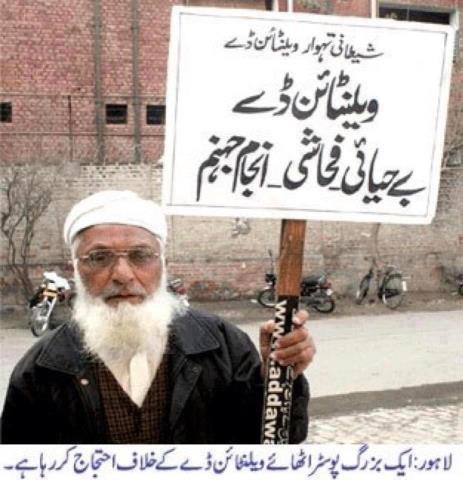 شیطانی تہوار ویلنٹائن ڈے
ویلنٹائن ڈے
بے حیائی - فحاشی - انجام جہنم
www.addawa
لاہور: ایک بزرگ پوسٹر اٹھائے ویلنٹائن ڈے کے خلاف احتجاج کر رہا ہے۔